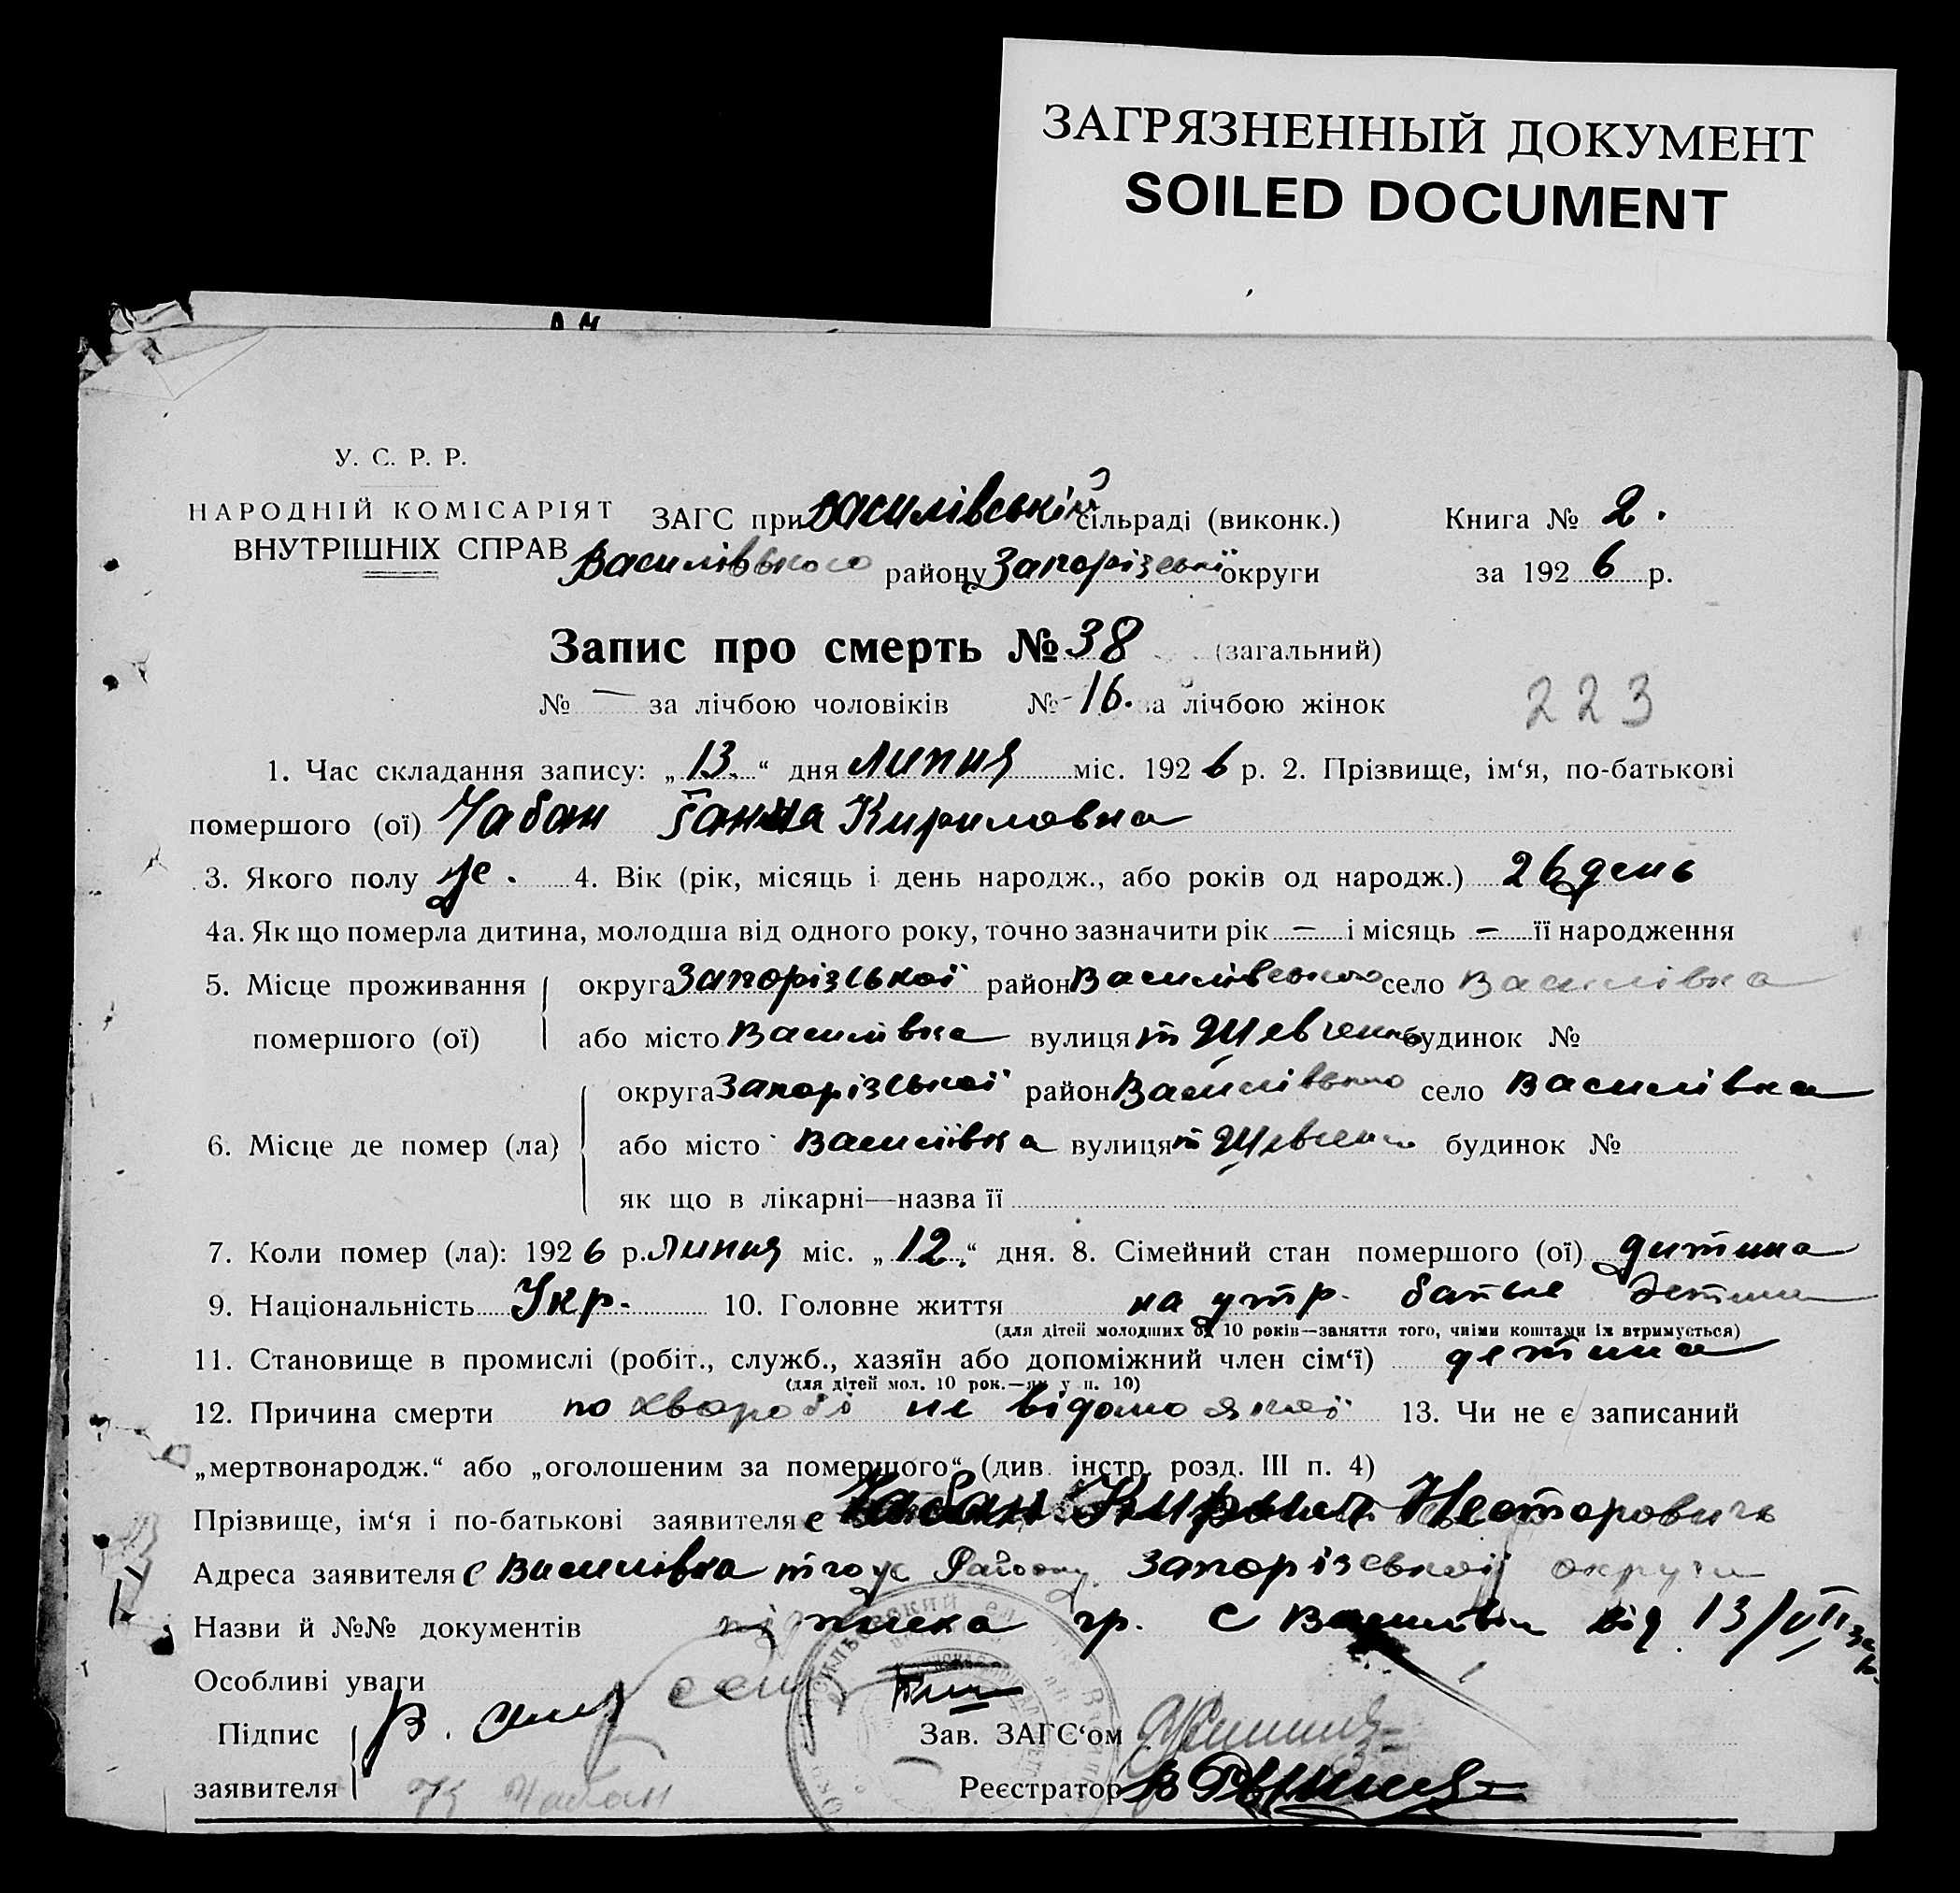 ЗАГРЯЗНЕННЫЙ ДОКУМЕНТ
SOILED DOCUMENT
У. С. Р. Р.
НАРОДНІЙ КОМІСАРІЯТ
ВНУТРІШНІХ СПРАВ
ЗАГС при Василівській сільраді (виконк.)
Книга № 2.
Василівського району Запорізської округи
за 1926 р.
Запис про смерть № 38 (загальний)
№ — за лічбою чоловіків № 16. за лічбою жінок
223
1. Час складання запису: „13.“ дня липня міс. 1926 р. 2. Прізвище, ім‘я, по-батькові
помершого (ої) Чабан Ганна Кириловна
3. Якого полу же. 4. Вік (рік, місяць і день народж., або років од народж.) 26 день
4а. Як що померла дитина, молодша від одного року, точно зазначити рік — і місяць — її народження
5. Місце проживання
помершого (ої)
округа Запорізської район Василівського село Василівка
або місто Василівка вулиця Шевченко будинок №
6. Місце де помер (ла)
округа Запорізської район Василівського село Василівка
або місто Василівка вулиця Шевченко будинок №
як що в лікарні—назва її
7. Коли помер (ла): 1926 р. липня міс. „12.“ дня. 8. Сімейний стан помершого (ої) дитина
9. Національність Укр. 10. Головне життя на утр. батьке
(для дітей молодших од 10 років—заняття того, чиїми коштами їх втримується)
11. Становище в промислі (робіт., служб., хазяїн або допоміжний член сім‘ї) детина
(для дітей мол. 10 рок.—як у п. 10)
12. Причина смерти по хворобі не відомо якої 13. Чи не є записаний
„мертвонародж.“ або „оголошеним за помершого“ (див. інстр. розд. III п. 4)
Прізвище, ім‘я і по-батькові заявителя є Чабан Кирило Несторовичь
Адреса заявителя с Василівка того ж Району Запорізської округи
Назви й №№ документів підписка гр. с Василівки від 13/VII
Особливі уваги
Підпис
заявителя
К Чабан
Зав. ЗАГС‘ом
Реєстратор